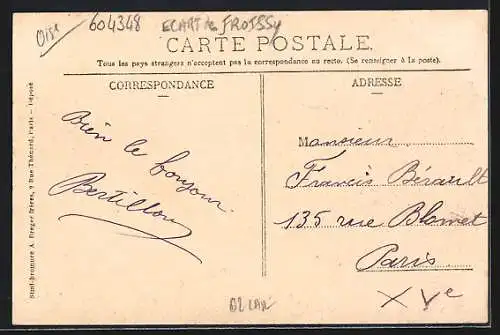 Oise 604348 ECART de FROISSY
CARTE POSTALE
Tous les pays étrangers n'acceptent pas la correspondance au recto. (Se renseigner à la poste).
CORRESPONDANCE
ADRESSE
Bien le bonjour.
Bertillon
Monsieur
Francis Bérault
135 rue Blomet
Paris
XVe
Simili-Bromure A. Breger frères, 9 Rue Thénard, Paris — Déposé